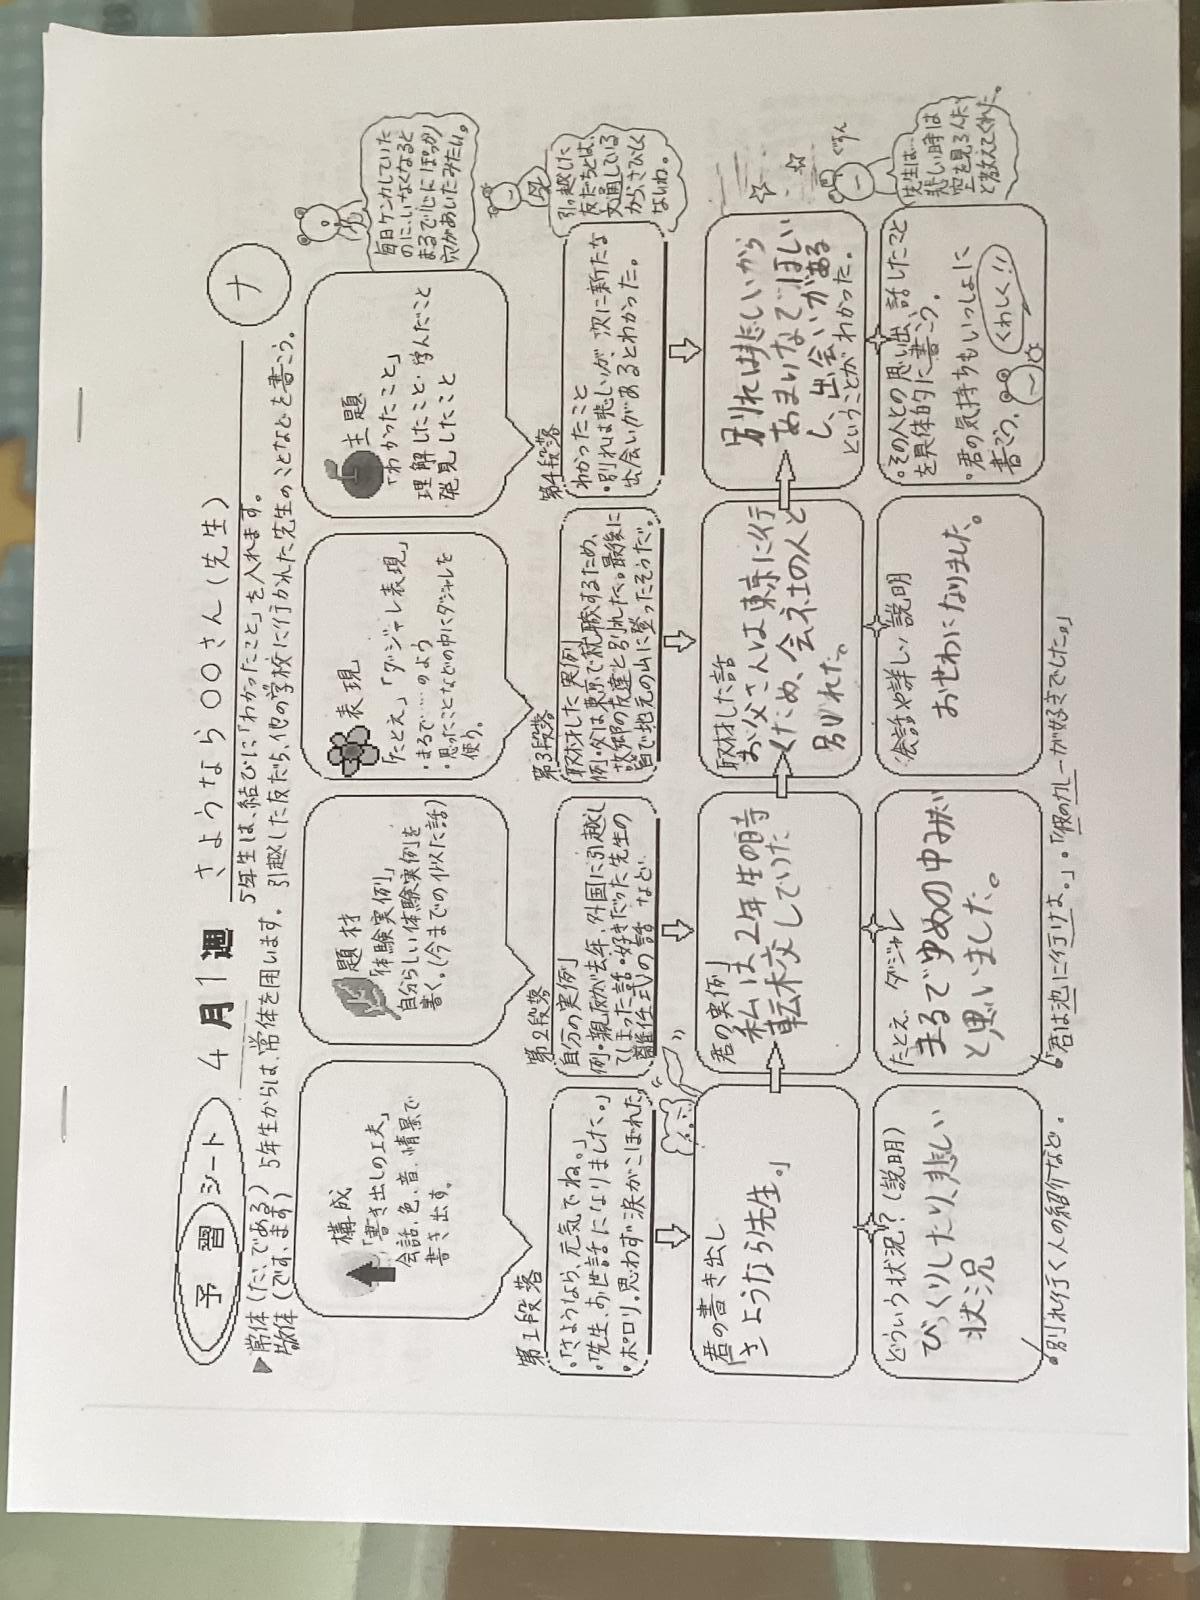 予習シート
4月1週
さようなら○○さん(先生)
ナ
▶常体(だ、である)
敬体(です、ます)
5年生からは、常体を用います。
5年生は、結びに「わかったこと」を入れます。
引越した友だち、他の学校に行かれた先生のことなどを書こう。
構成
「書き出しの工夫」
会話、色、音、情景で
書き出す。
題材
「体験実例」
自分らしい体験実例を
書く。(今までの似た話)
表現
「たとえ」「ダジャレ表現」
・まるで……のよう
・思ったことなどの中にダジャレを
使う。
主題
「わかったこと」
理解したこと・学んだこと
発見したこと
毎日ケンカしていた
のに、いなくなると
まるで心にぽっかり
穴があいたみたい。
第1段落
・「さようなら、元気でね。」
・「先生、お世話になりました。」
・ポロリ。思わず涙がこぼれた。
第2段落
自分の実例
例・親友が去年、外国に引越し
てしまった話・好きだった先生の
離任式の話 など
第3段落
取材した実例
例・父は東京で就職するため、
故郷の友達と別れた。最後に
皆で地元の山に登ったそうだ。
第4段落
わかったこと
・別れは悲しいが、次に新たな
出会いがあるとわかった。
引っ越した
友だちとは、
文通している
からさびしく
ないわ。
君の書き出し
「さようなら先生。」
君の実例
私は2年生の時
転校していた
取材した話
お父さんは東京に行
くため、会社の人と
別れた。
別れは悲しいから
あまりなでほしい
し、出会いがある
ということがわかった。
ぐすん
どういう状況?(説明)
びっくりしたり、悲しい
状況
たとえ、ダジャレ
まるでゆめの中みたい
と思いました。
会話や詳しい説明
おせわになりました。
・その人との思い出、話したこと
を具体的に書こう。
・君の気持ちもいっしょに
書こう。
くわしく!!
先生は…
悲しい時は
空を見るんだ
と教えてくれた。
・別れ行く人の紹介など。
・「君は池に行けよ。」・「彼のカレーが好きでした。」